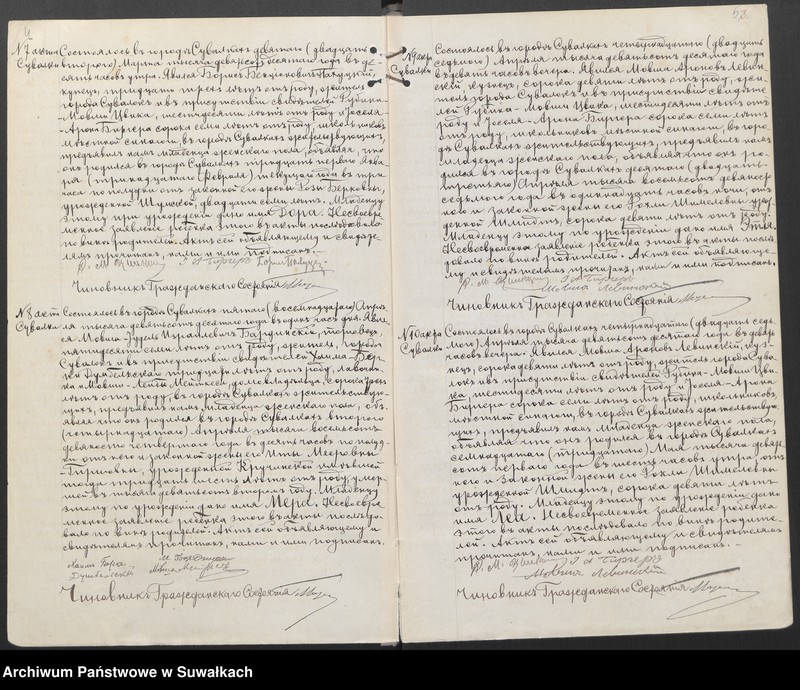 4
№ 7 актъ Состоялось въ городѣ Сувалкахъ девятаго (двадцать
Сувалки второго) Марта тысяча девятьсотъ десятаго года въ де-
сять часовъ утра. Явился Борисъ
купецъ, тридцати трехъ лѣтъ отъ роду, житель
города Сувалокъ и въ присутствіи свидѣтелей Рувина-
Мовши Цвика, шестидесяти лѣтъ отъ роду и Іоселя-
Арона Бергера сорока семи лѣтъ отъ роду, школьниковъ
мѣстной синагоги, въ городѣ Сувалкахъ жительствующихъ,
предъявилъ намъ младенца женскаго пола, объявляя, что
онъ родился въ городѣ Сувалкахъ тридцать перваго Янва-
ря (тринадцатаго Февраля) текущаго года въ три
часа пополудни отъ законной его жены Розы Берковны,
урожденной двадцати семи лѣтъ. Младенцу
этому при урожденіи дано имя Дора. Несвоевре-
менное заявленіе ребенка этого въ акты послѣдовало
по винѣ родителей. Актъ сей объявляющему и свидѣте-
лямъ прочитанъ, нами и ими подписанъ.
Чиновникъ Гражданскаго Состоянія
№ 8 актъ Состоялось въ городѣ Сувалкахъ пятаго (восемнадцатаго) Апрѣ-
Сувалки ля тысяча девятьсотъ десятаго года въ часъ дня. Явил-
ся Мовша- Израилевичъ торговецъ,
пятидесяти семи лѣтъ отъ роду, житель города
Сувалокъ и въ присутствіи свидѣтелей Хаима-Бер-
ки тридцати лѣтъ отъ роду, лавочни-
ка и Мовши- домовладѣльца, сорока
лѣтъ отъ роду, въ городѣ Сувалкахъ жительствую-
щихъ, предъявилъ намъ младенца женскаго пола, объ-
являя что онъ родился въ городѣ Сувалкахъ второго
(четырнадцатаго) Апрѣля тысяча восемьсотъ
девяносто четвертаго года въ десять часовъ по полуд-
ни отъ него и законной жены его Ити Мееровны
урожденной имѣвшей
тогда тридцать шесть лѣтъ отъ роду, умер-
шей въ тысяча девятьсотъ второмъ году. Младенцу
этому по урожденіи дано имя Мера. Несвоевре-
менное заявленіе ребенка этого въ акты послѣдо-
вало по винѣ родителей. Актъ сей объявляющему и
свидѣтелямъ прочитанъ, нами и ими подписанъ.
Чиновникъ Гражданскаго Состоянія
58.
№ 9 актъ Состоялось въ городѣ Сувалкахъ четырнадцатаго (двадцать
Сувалки седьмого) Апрѣля тысяча девятьсотъ десятаго года
въ девять часовъ вечера. Явился Мовша Ароновъ Левин-
скій, кузнецъ, сорока девяти лѣтъ отъ роду, жи-
тель города Сувалокъ и въ присутствіи свидѣте-
лей Рувина-Мовши Цвика, шестидесяти лѣтъ отъ
роду и Іоселя-Арона Бергера сорока семи лѣтъ
отъ роду, школьниковъ мѣстной синагоги, въ горо-
дѣ Сувалкахъ жительствующихъ, предъявилъ намъ
младенца женскаго пола, объявляя что онъ ро-
дился въ городѣ Сувалкахъ (двадцать-
третьяго) Апрѣля тысяча восемьсотъ девяносто
седьмого года въ одиннадцать часовъ ночи, отъ
него и законной жены его Рохли Шмелевны урож-
денной Шмидтъ, сорока девяти лѣтъ отъ роду.
Младенцу этому по урожденіи дано имя
Несвоевременное заявленіе ребенка этого въ акты послѣ-
довало по винѣ родителей. Актъ сей объявляюще-
му и свидѣтелямъ прочитанъ, нами и ими подписанъ.
Чиновникъ Гражданскаго Состоянія
№ 10 актъ Состоялось въ городѣ Сувалкахъ четырнадцатаго (двадцать седь-
Сувалки мого) Апрѣля тысяча девятьсотъ десятаго года въ девять
часовъ вечера. Явился Мовша Ароновъ Левинскій, куз-
нецъ, сорока девяти лѣтъ отъ роду, житель города Сува-
локъ и въ присутствіи свидѣтелей Рувина-Мовши Цви-
ка, шестидесяти лѣтъ отъ роду и Іоселя-Арона
Бергера сорока семи лѣтъ отъ роду, школьниковъ,
мѣстной синагоги, въ городѣ Сувалкахъ жительствую-
щихъ, предъявилъ намъ младенца женскаго пола,
объявляя что онъ родился въ городѣ Сувалкахъ
семнадцатаго (тридцатаго) Мая тысяча девять-
сотъ перваго года въ шесть часовъ утра, отъ
него и законной жены его Рохли Шмелевны
урожденной Шмидтъ, сорока девяти лѣтъ
отъ роду. Младенцу этому по урожденіи дано
имя Лея. Несвоевременное заявленіе ребенка
этого въ акты послѣдовало по винѣ родите-
лей. Актъ сей объявляющему и свидѣтелямъ
прочитанъ, нами и ими подписанъ.
Чиновникъ Гражданскаго Состоянія
Archiwum Państwowe w Suwałkach